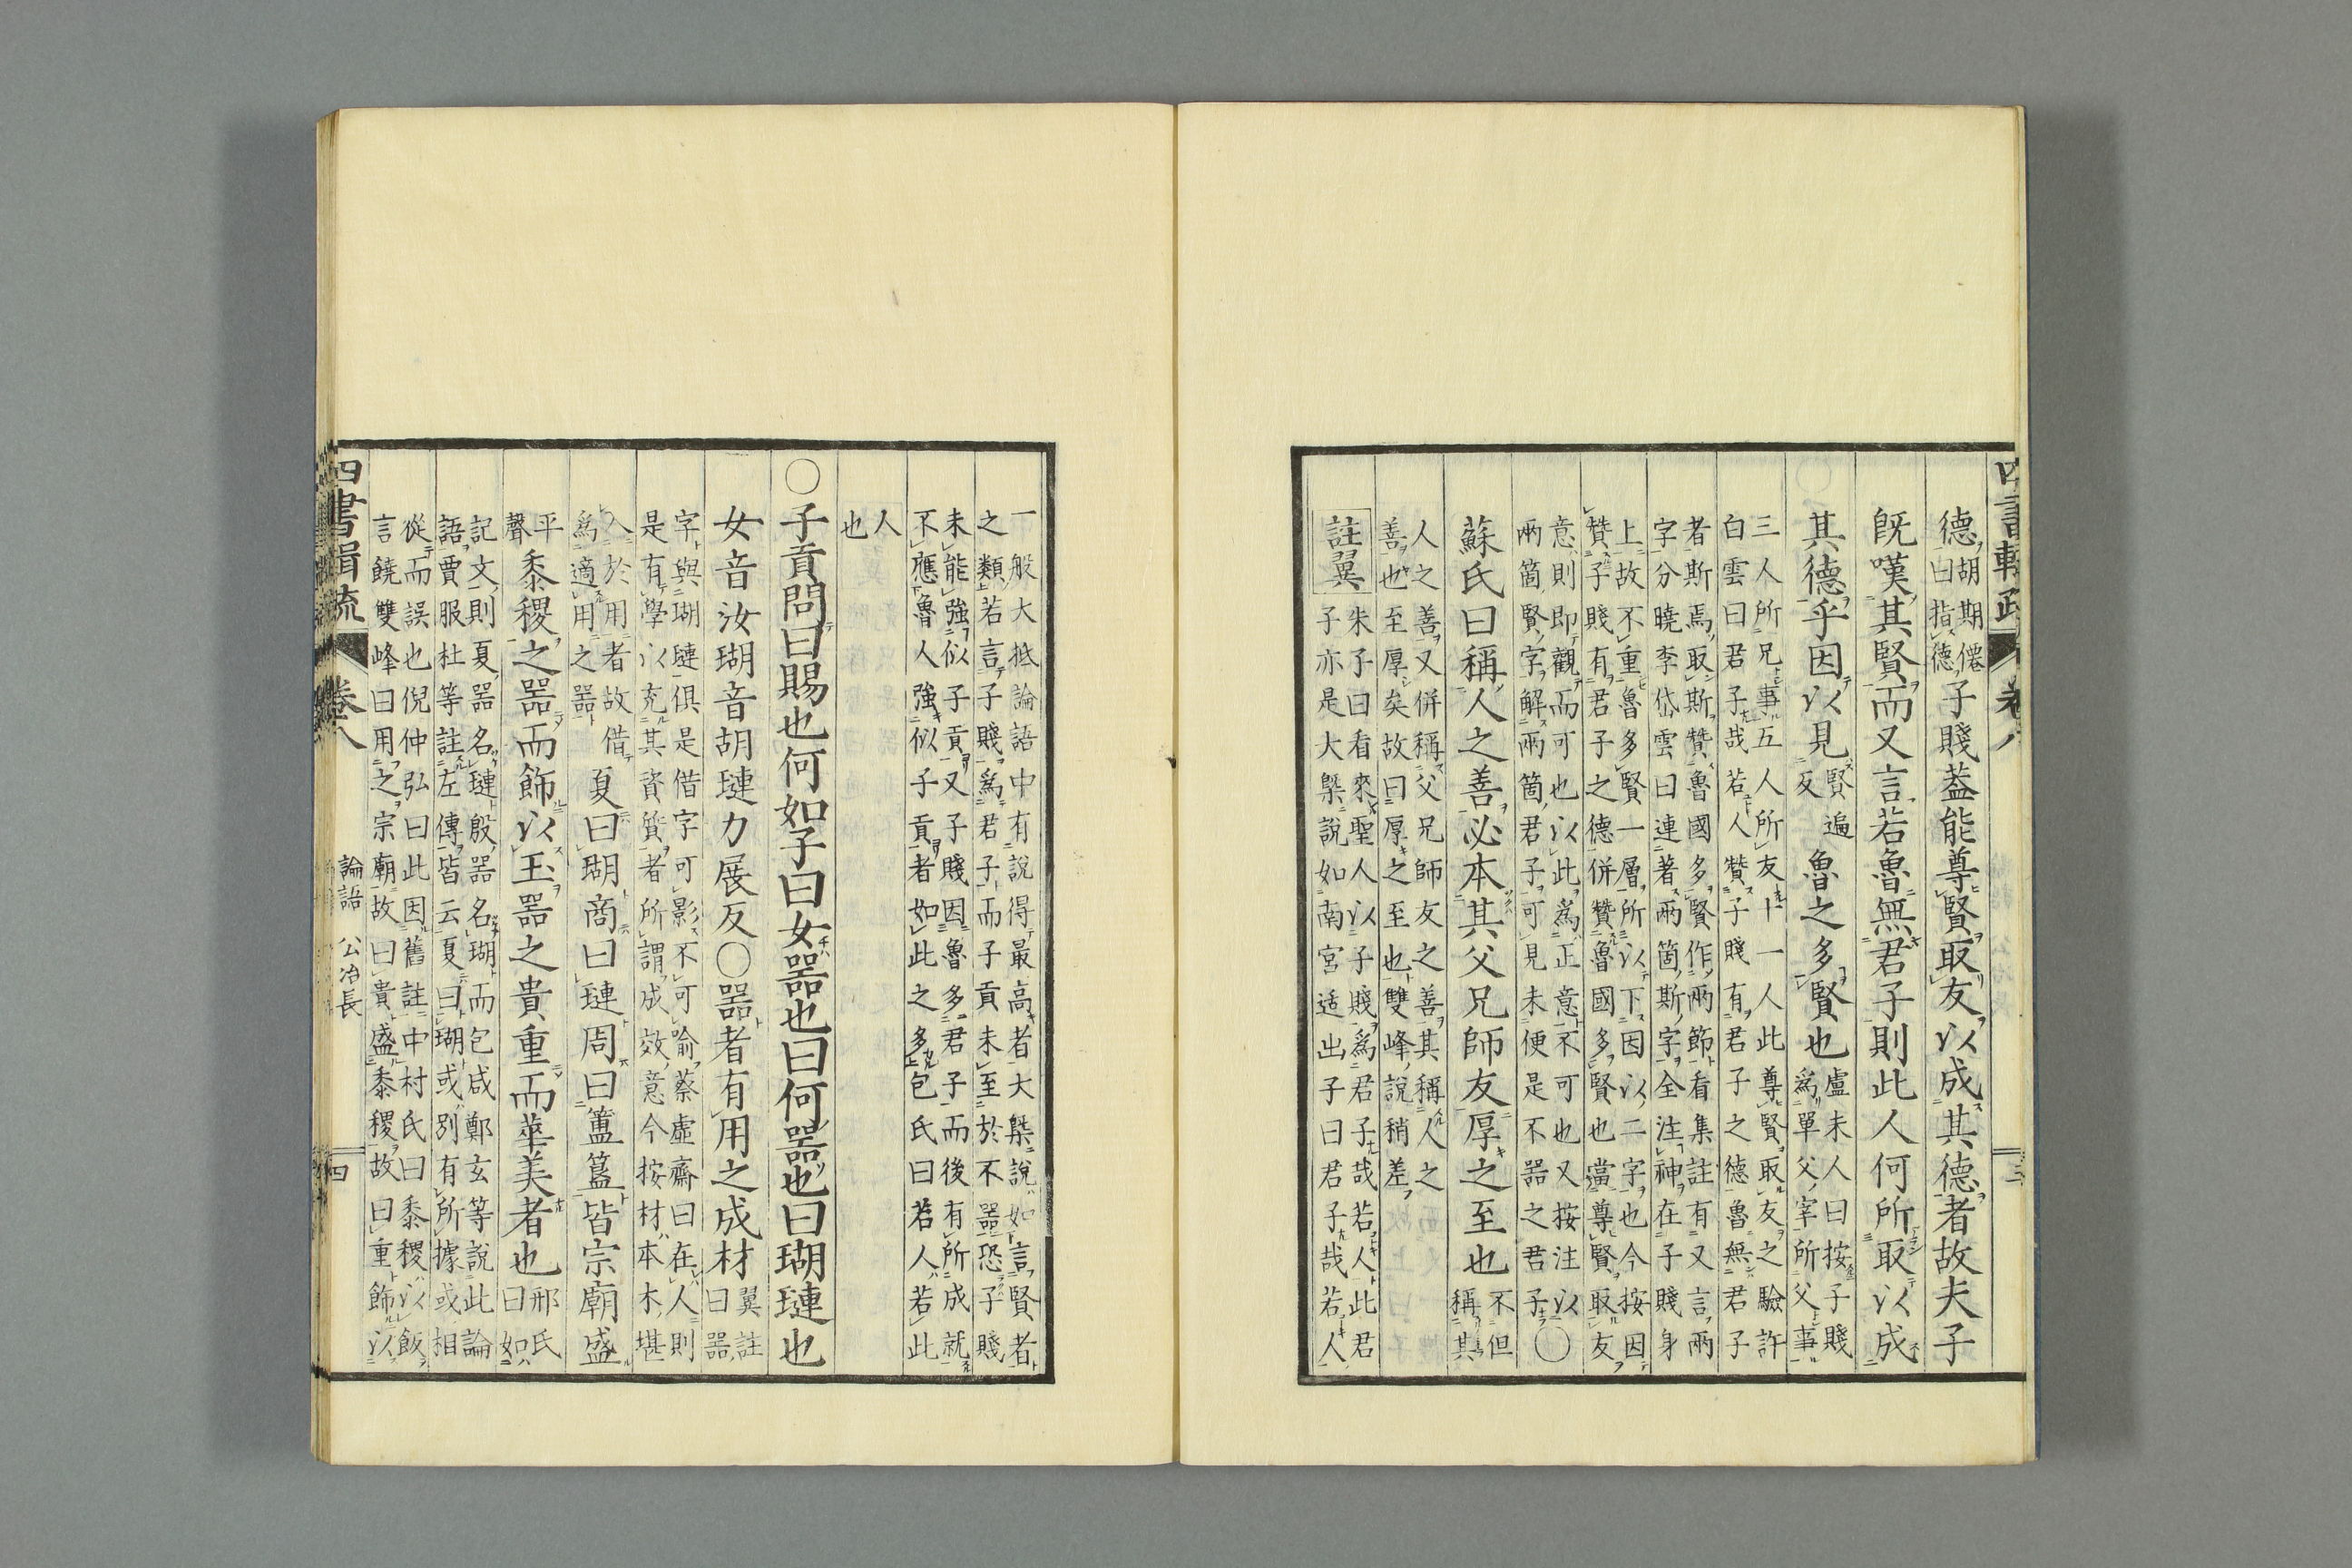 四書輯疏 卷八 三
德曰胡期僊指德子賤蓋能尊賢取友以成其德者故夫子
既嘆其賢而又言若魯無君子則此人何所取以成
其德乎因以見賢遍反魯之多賢也盧未人曰按子賤爲單父宰所父事
三人所兄事五人所友十一人此尊賢取友之驗許
白雲曰君子哉若人贊子賤有君子之德魯無君子
者斯焉取斯贊魯國多賢作兩節看集註有又言兩
字分曉李岱雲曰連著兩箇斯字全注神在子賤身
上故不重魯多賢一層所以下因以二字也今按因
贊子賤有君子之德併贊魯國多賢也當尊賢取友
意則即觀而可也以此爲正意不可也又按注以
兩箇賢字解兩箇君子可見未便是不器之君子〇
蘇氏曰稱人之善必本其父兄師友厚之至也不但稱其
人之善又併稱父兄師友之善其稱人之
善也至厚矣故曰厚之至也雙峰說稍差
註翼
朱子曰看來聖人以子賤爲君子哉若人此君
子亦是大槩說如南宮适出子曰君子哉若人
一般大抵論語中有說得最高者大槩說如言賢者
之類若言子賤爲君子而子貢未至於不噐恐子賤
未能強似子貢又子賤因魯多君子而後有所成就
不應魯人強似子貢者如此之多包氏曰若人若此
人
也
〇子貢問曰賜也何如子曰女噐也曰何噐也曰瑚璉也
女音汝瑚音胡璉力展反〇噐者有用之成材翼註曰器
字與瑚璉俱是借字可影不可喻蔡虛齋曰在人則
是有學以充其資質者所謂成效意今按材本木堪
入於用者故借
爲適用之噐
夏曰瑚商曰璉周曰簠簋皆宗廟盛
平聲黍稷之噐而飾以玉噐之貴重而華美者也邢氏曰如
記文則夏器名璉殷器名瑚而包咸鄭玄等說此論
語賈服杜等註左傳皆云夏曰瑚或別有所據或相
從而誤也倪仲弘曰此因舊註中村氏曰黍稷以飯
言饒雙峰曰用之宗廟故曰貴盛黍稷故曰重飾以
四書輯疏 卷八 論語 公冶長 四